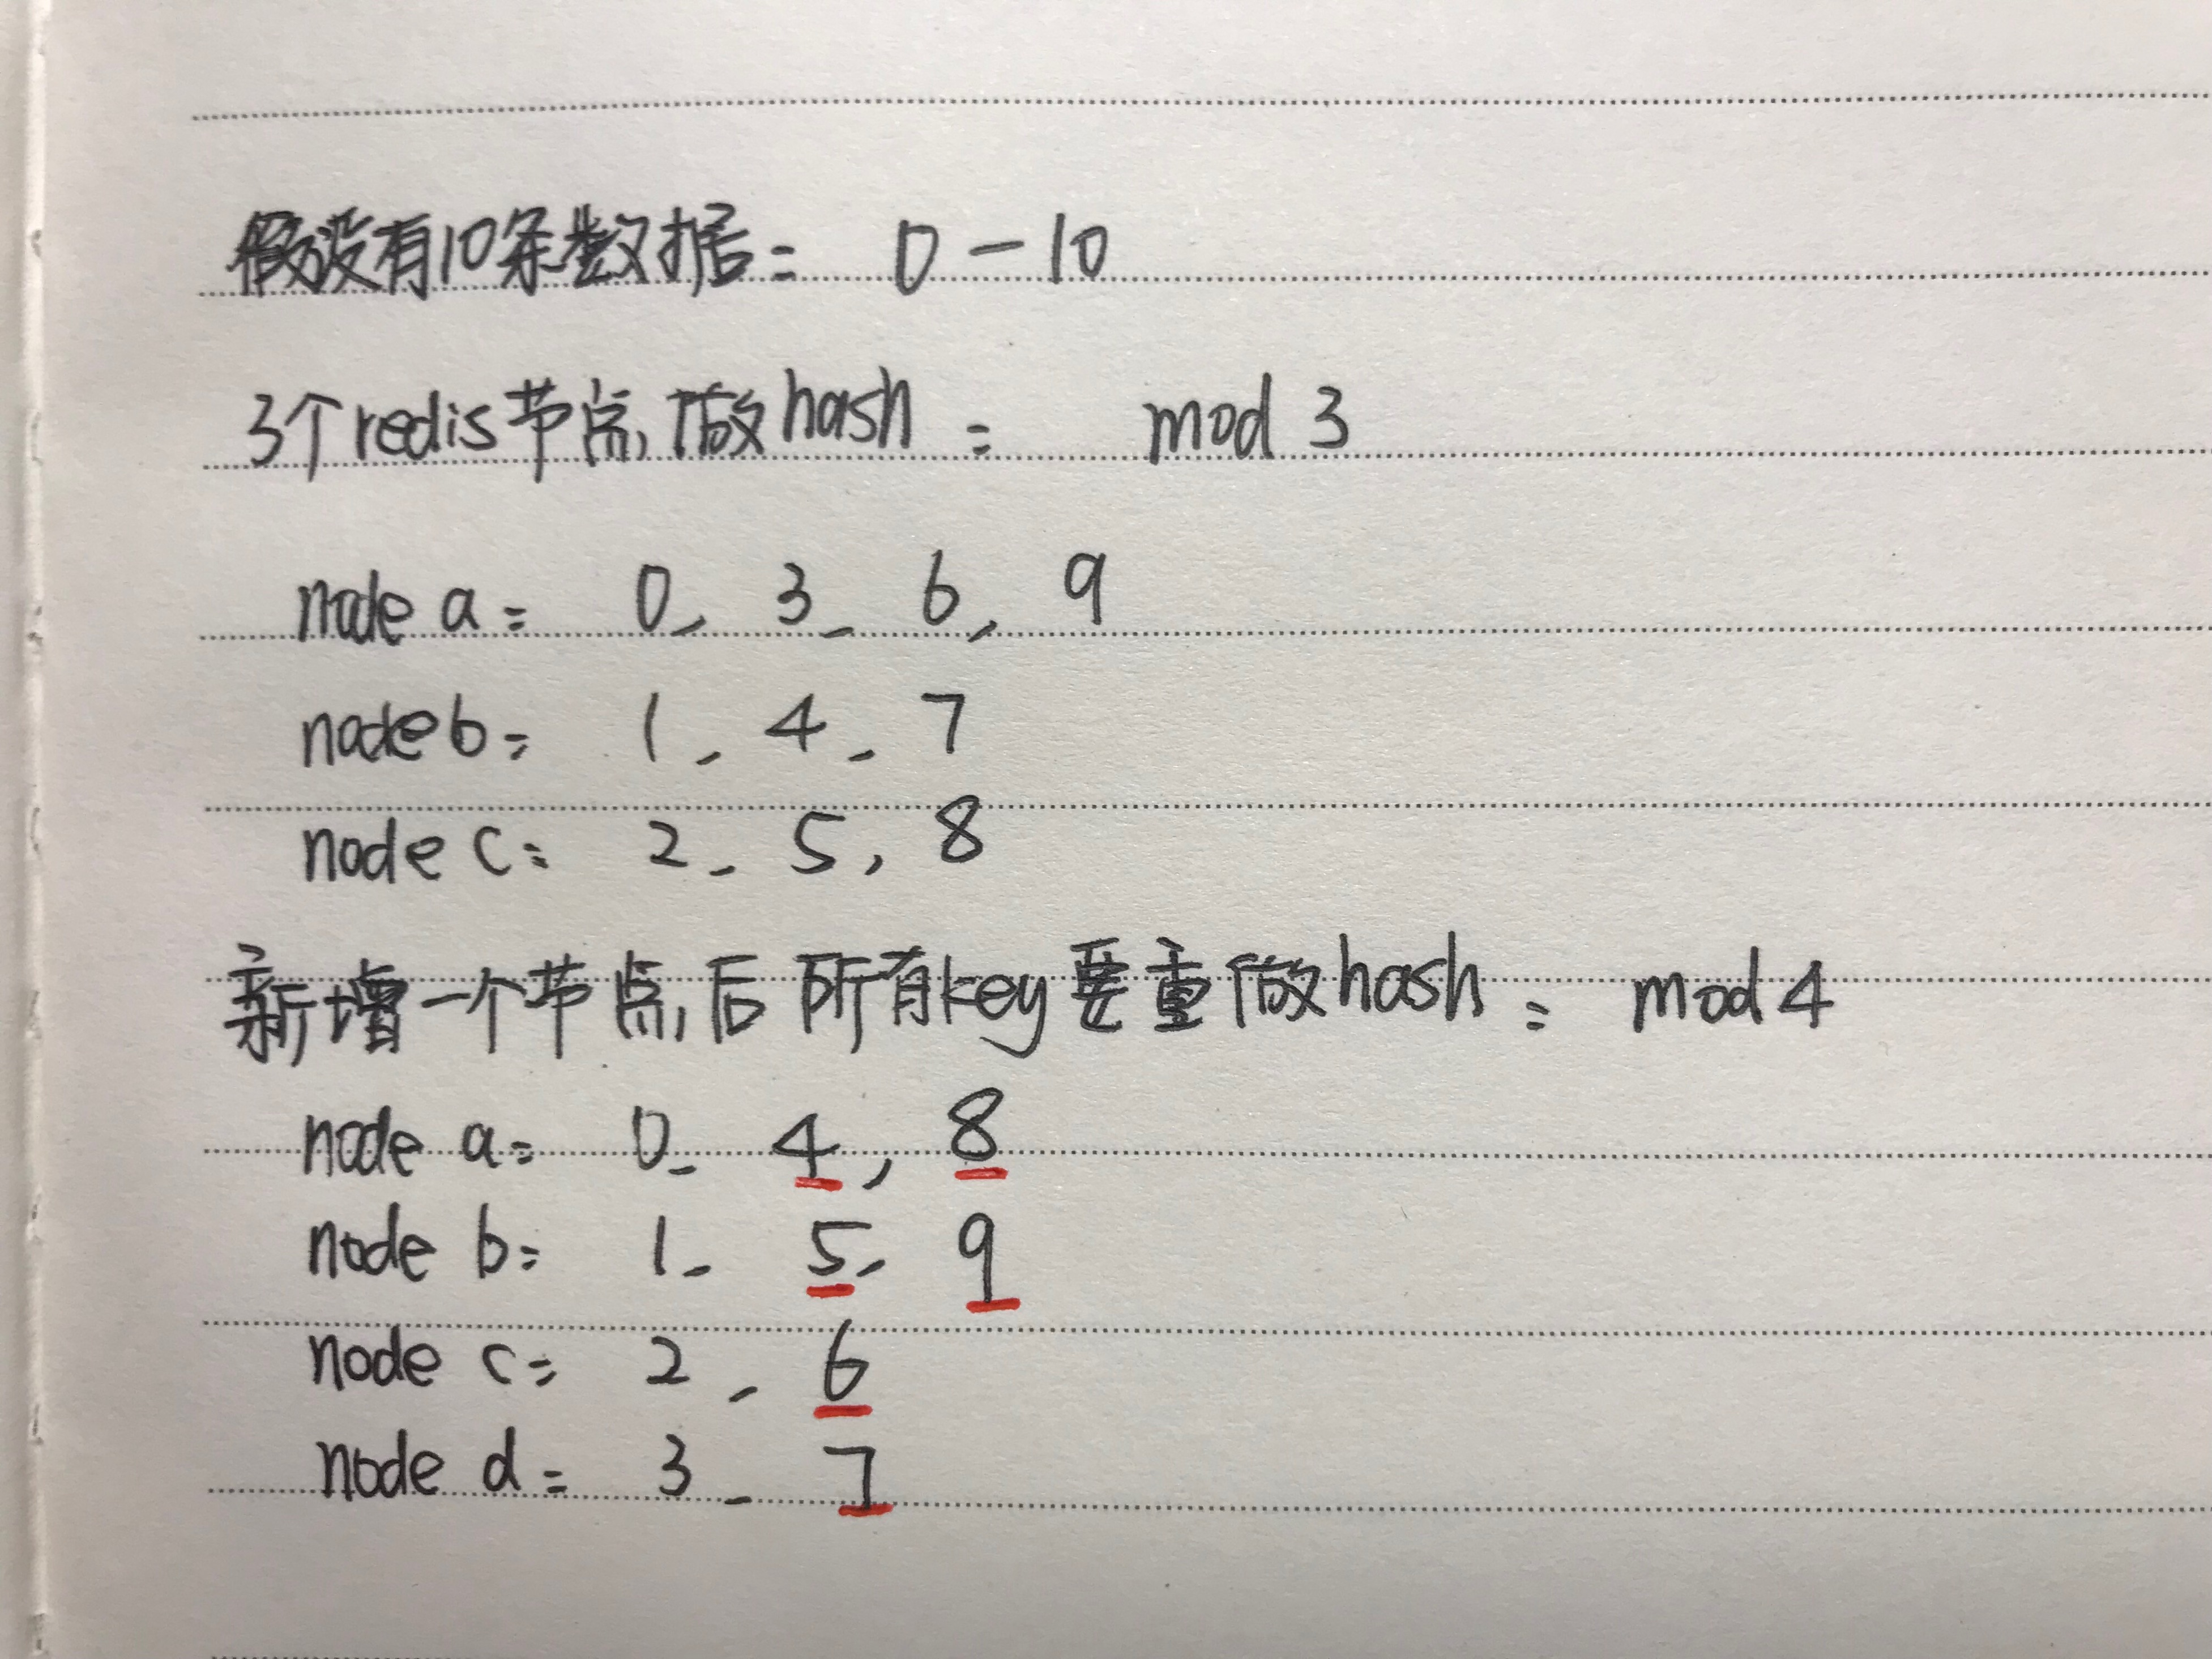 假设有10条数据: 0-10
3个redis节点,做hash: mod 3
node a: 0, 3, 6, 9
node b: 1, 4, 7
node c: 2, 5, 8
新增一个节点后所有key要重做hash: mod 4
node a: 0, 4, 8
node b: 1, 5, 9
node c: 2, 6
node d: 3, 7